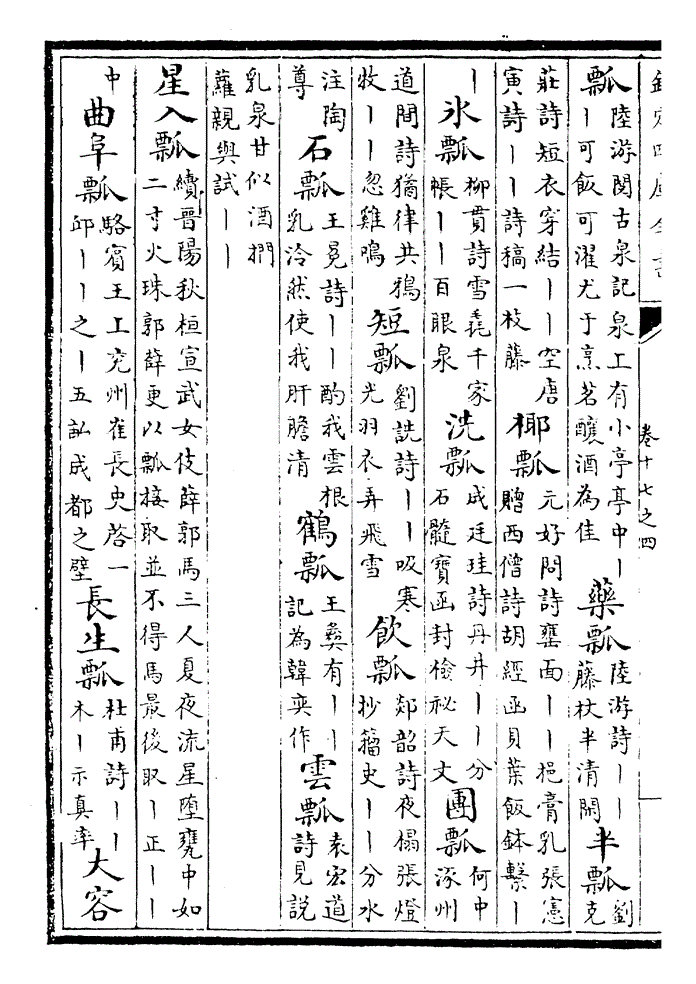 欽定四庫全書
卷十七之四
瓢陸游閲古泉記泉上有小亭亭中丨丨可飯可濯尤于烹茗釀酒為佳 藥瓢陸游詩丨丨藤杖半清閒 半瓢劉克
莊詩短衣穿結丨丨空唐寅詩丨丨詩稿一枝藤 椰瓢元好問詩壅面丨丨挹膏乳張憲贈西僧詩胡經函貝葉飯鉢繫丨
丨 氷瓢柳貫詩雪毳千家帳丨丨百眼泉 洗瓢成廷珪詩丹井丨丨分石髓寶函封檢祕天文 團瓢何中涿州
道間詩猶律共鴉牧丨丨忽雞鳴 短瓢劉詵詩丨丨吸寒光羽衣弄飛雪 飲瓢郯韶詩夜榻張燈抄籀史丨丨分水
注陶尊 石瓢王冕詩丨丨酌我雲根乳泠然使我肝膽清 鶴瓢王彝有丨丨記為韓奕作 雲瓢袁宏道詩見説
乳泉甘似酒捫蘿親與試丨丨
星入瓢續晉陽秋桓宣武女伎薛郭馬三人夏夜流星墮甕中如二寸火珠郭薛更以瓢接取並不得馬最後取丨正丨丨
中 曲阜瓢駱賓王上兖州崔長史啓一邱丨丨之丨五訟成都之壁 長生瓢杜甫詩丨丨木丨示真率 大容